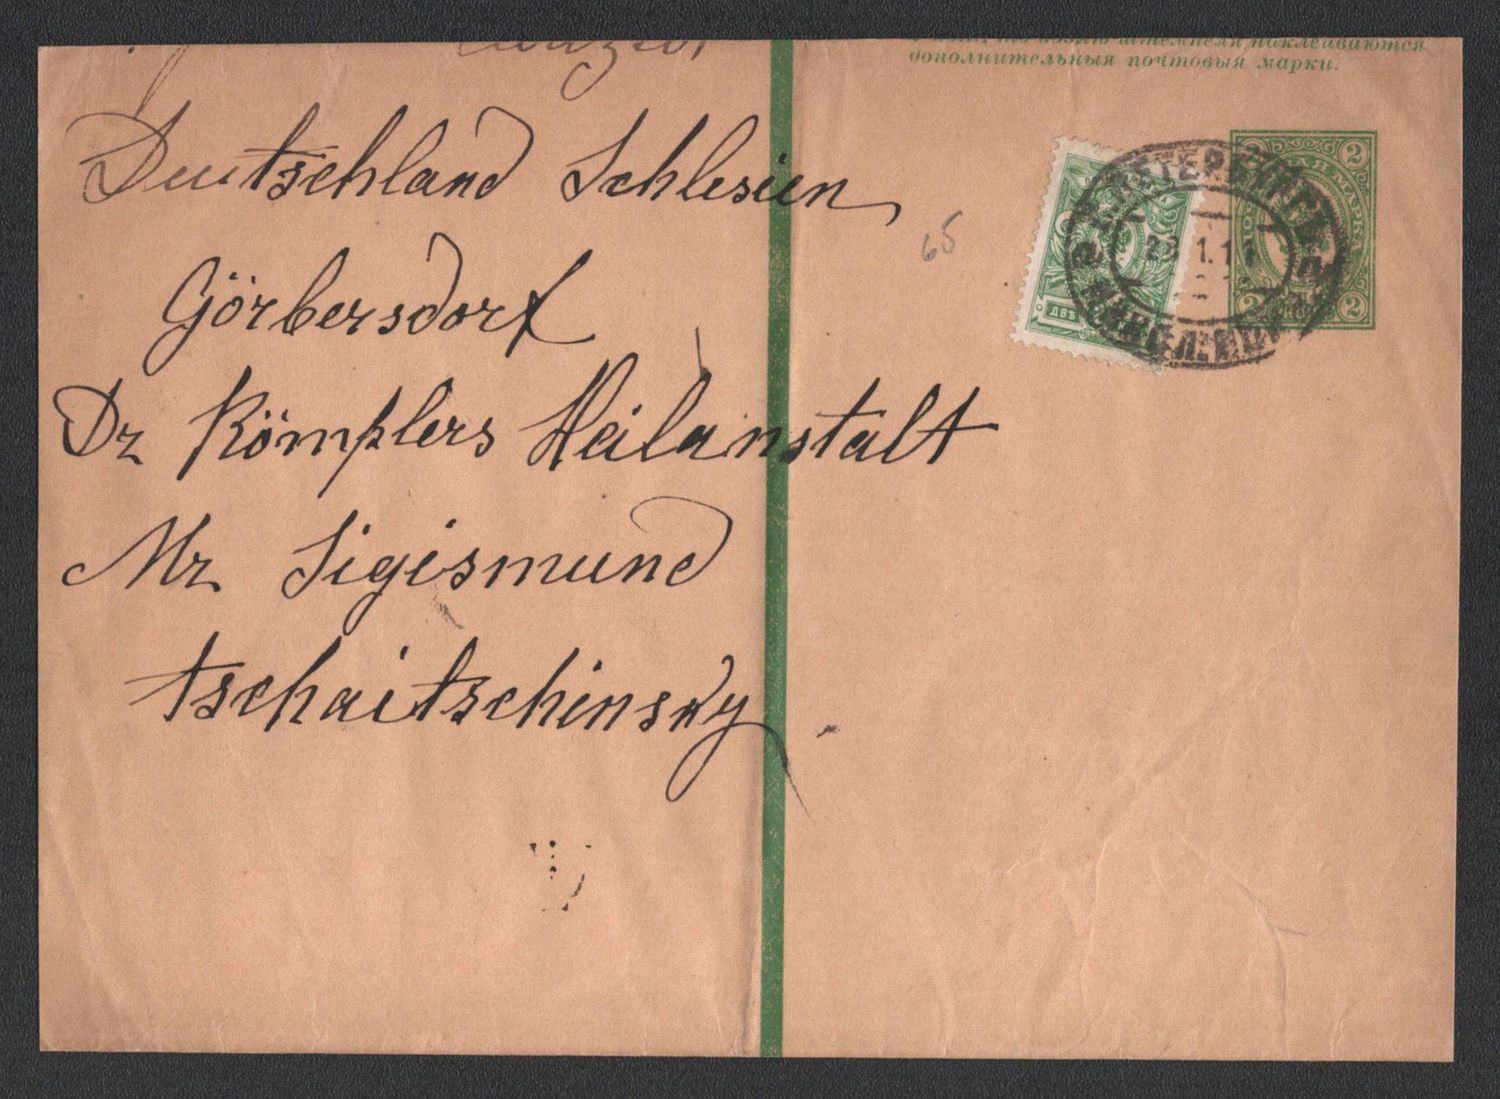 наклеиваются
дополнительныя почтовыя марки.
Deutschland Schlesien
Görbersdorf
Dr Römplers Heilanstalt
Mr Sigismund
Tschaitschinsky
65
2 2
МАРКА
2 2
ДВѢ
ПЕТЕРБУРГСК
1.11